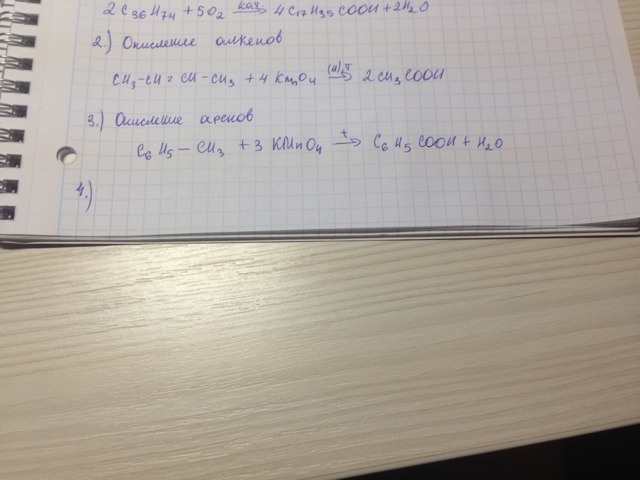 2 C36H74 + 5O2 кат.→ 4 C17H35COOH + 2H2O
2.) Окисление алкенов
CH3-CH=CH-CH3 + 4 KMnO4 (H),t→ 2 CH3COOH
3.) Окисление аренов
C6H5 – CH3 + 3 KMnO4 t→ C6H5COOH + H2O
4.)